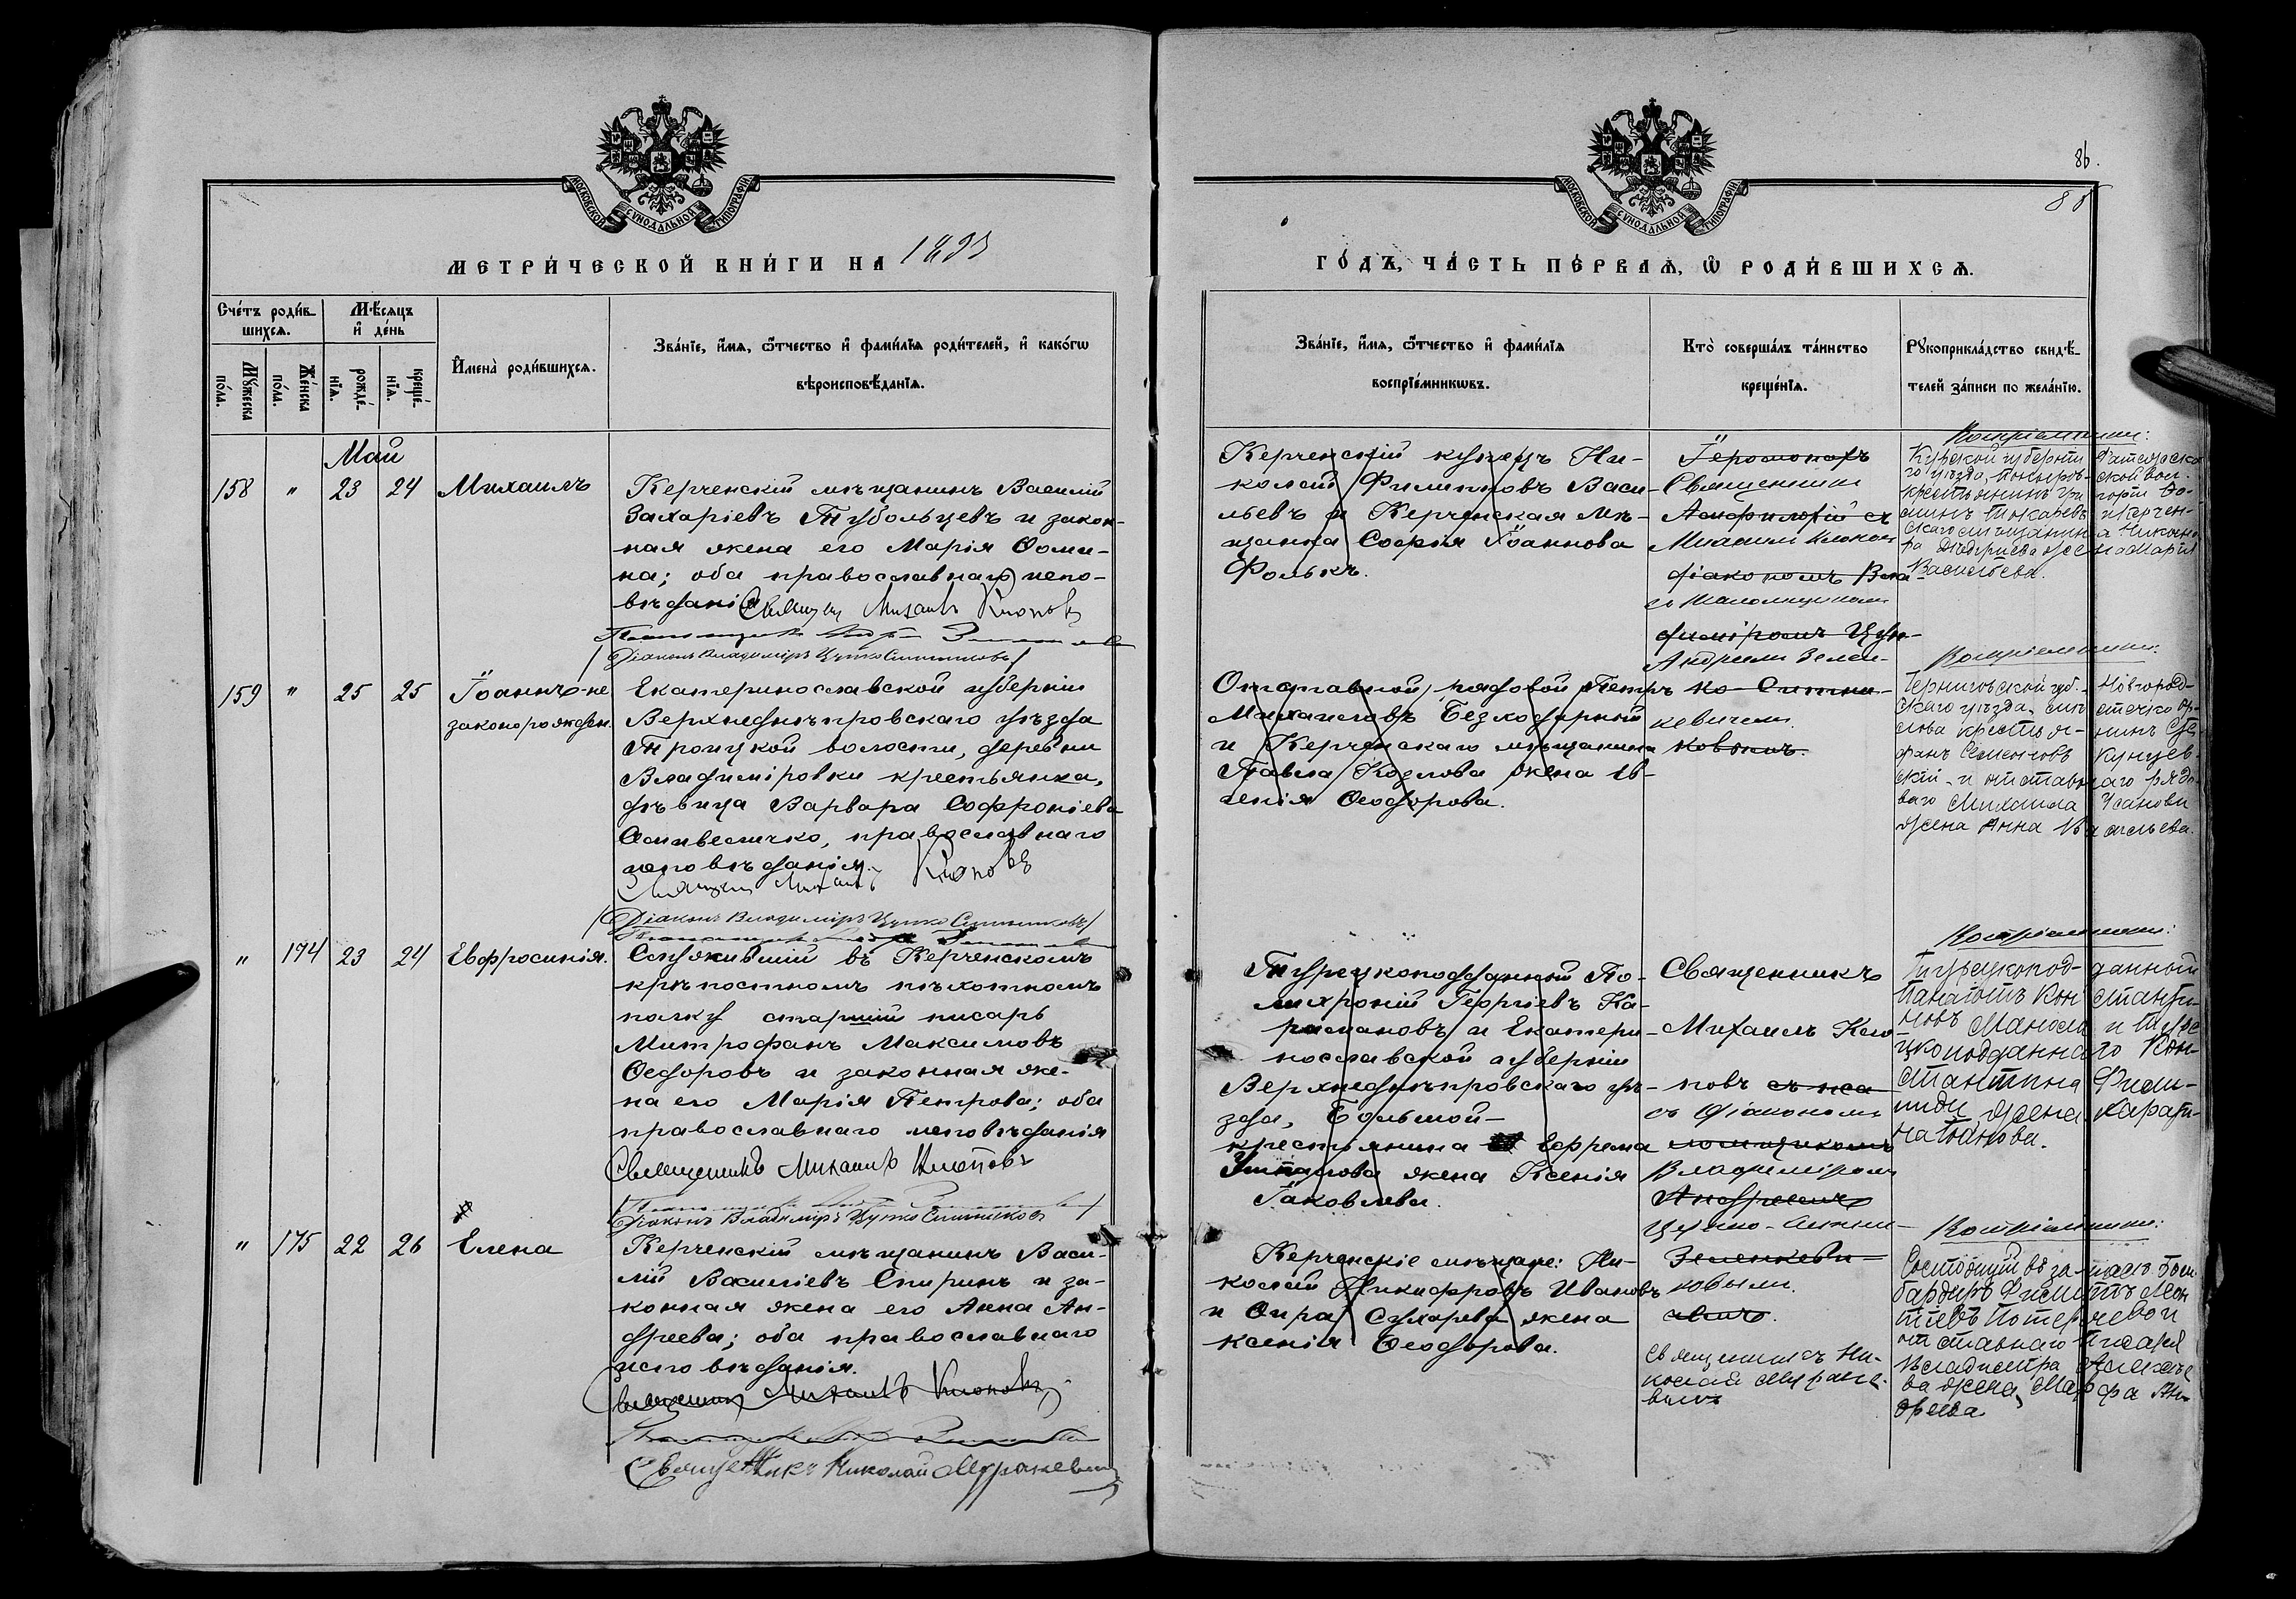 МОСКОВСКОЙ СѴНОДАЛЬНОЙ ТИПОГРАФІИ
МЕТРИ́ЧЕСКОЙ КНИ́ГИ НА 1893
Сче́тъ роди́в-
шихсѧ.
Мѣ́сѧцъ
и҆ де́нь
Мꙋ́жеска
по́ла.
Же́нска
по́ла.
рожде́-
нїѧ.
креще́-
нїѧ.
И҆мена̀ роди́вшихсѧ.
Зва́нїе, и҆́мѧ, ѻ҆́тчество и҆ фами́лїѧ роди́телей, и҆ како́гѡ
вѣроисповѣ́данїѧ.
Май
158 " 23 24 Михаилъ
Керченскій мѣщанинъ Василій
Захаріевъ Тубольцевъ и закон-
ная жена его Марія Ѳоми-
на; оба православнаго испо-
вѣданія Священ Михаилъ Клоповъ
Діаконъ Владиміръ Цупко Ситниковъ
159 " 25 25 Іоаннъ-не
законорожден.
Екатеринославской губерніи
Верхнеднѣпровскаго уѣзда
Троицкой волости, деревни
Владиміровки крестьянка,
дѣвица Варвара Софроніева
православнаго
исповѣданія.
Священ Михаилъ Клоповъ
Діаконъ Владиміръ Цупко Ситниковъ
" 174 23 24 Евфросинія.
Служившій въ Керченскомъ
крѣпостномъ пѣхотномъ
полку старшій писарь
Митрофанъ Максимовъ
Ѳедоровъ и законная же-
на его Марія Петрова; оба
православнаго исповѣданія
Священникъ Михаилъ Клоповъ
Діаконъ Владиміръ Цупко Ситниковъ
" 175 22 26 Елена
Керченскій мѣщанинъ Васи-
лій Василіевъ Спиринъ и за-
конная жена его Анна Ан-
дреева; оба православнаго
исповѣданія.
Священник Михаилъ Клоповъ
Священникъ Николай Мураневичъ
86.
МОСКОВСКОЙ СѴНОДАЛЬНОЙ ТИПОГРАФІИ
ГО́ДЪ, ЧА́СТЬ ПЕ́РВАѦ, Ѡ҆ РОДИ́ВШИХСѦ.
Зва́нїе, и҆́мѧ, ѻ҆́тчество и҆ фами́лїѧ
воспрїе́мникѡвъ.
Кто̀ соверша́лъ та́инство
креще́нїѧ.
Рꙋкоприкла́дство свидѣ́-
телей за́писи по жела́нїю.
Керченскій купецъ Ни-
колай Филипповъ Васи-
льевъ и Керченская мѣ-
щанка Софія Іоаннова
Фолькъ.
Іеромонахъ
Священник
Амфилохій съ
Михаил Клопов
діакономъ Вла-
съ псаломщиком
диміромъ Цуп-
Андреем Зелен-
ко-Ситни-
кевичем.
ковымъ.
Воспріемники:
Курской губерніи Фатежска-
го уѣзда, Поныров- ской вол.
крестьянинъ Гри- горій Ѳо-
минъ Токаревъ и Керчен-
скаго мѣщанина Никано-
ра жена Марія
Васильева.
Отставной рядовой Петръ
Михаиловъ Безкодарный
и Керченскаго мѣщанина
Павла Козлова жена Ев-
генія Ѳеодорова.
Воспріемники:
Черниговской губ. Новгород-
скаго уѣзда,
крестья- нинъ Сте-
фанъ Семеновъ
и отставнаго рядо-
ваго Михаила Усанова
жена Анна Васильева.
Турецкоподданный По-
лихроній Георгіевъ Ка-
рамановъ и Екатери-
нославской губерніи
Верхнеднѣпровскаго уѣ-
зда, Большой-
крестьянина Ефрема
жена Ксенія
Іаковлева.
Священникъ
Михаилъ Кло-
повъ съ пса-
съ діакономъ
ломщикомъ
Владиміромъ
Андреемъ
Цупко-Ситни-
Зеленкеви-
ковымъ.
чемъ.
Воспріемники:
Турецкопод- данный
Панаіотъ Кон станти-
новъ Маноли и Туре
цкоподданнаго Кон-
стантина Фили-
пиди жена
Керченскіе мѣщане: Ни-
колай Никифоровъ Ивановъ
и Сухарева жена
Ксенія Ѳеодорова.
Священникъ Ни-
колай Муране-
вичъ
Воспріемники:
Состоящій въ запасѣ бом-
бардиръ Филиппъ Леон
тіевъ и
отставнаго писаря
Алексѣе
ва жена Марфа Ан-
дреева